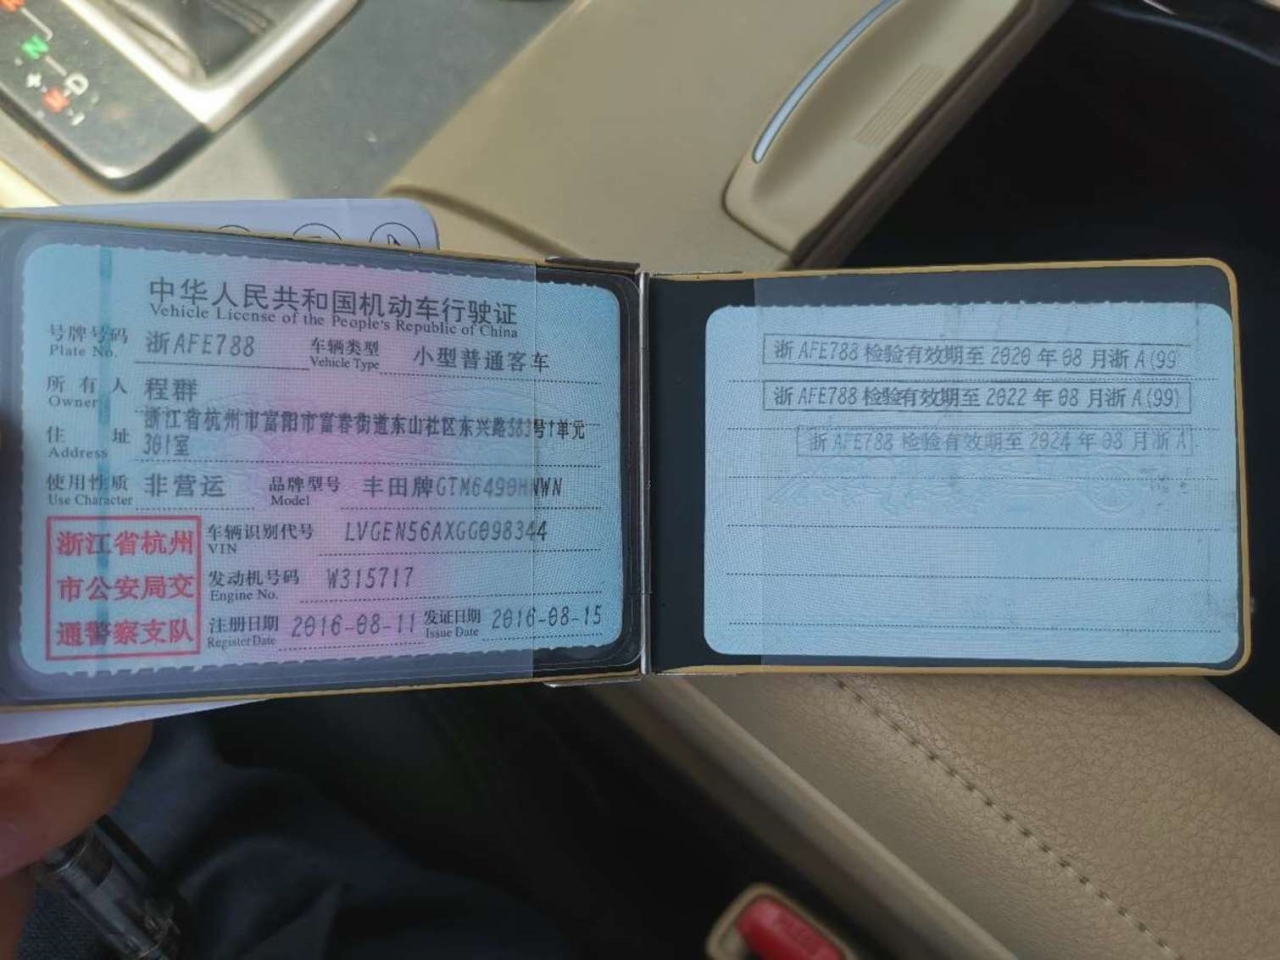 中华人民共和国机动车行驶证
Vehicle License of the People's Republic of China
号牌号码 浙AFE788 车辆类型 小型普通客车
Plate No. Vehicle Type
所有人 程群
Owner
浙江省杭州市富阳市富春街道东山社区东兴路583号1单元
住址 301室
Address
使用性质 非营运 品牌型号 丰田牌GTM6490HNWN
Use Character Model
浙江省杭州
市公安局交
通警察支队
车辆识别代号 LVGEN56AXGG098344
VIN
发动机号码 W315717
Engine No.
注册日期 2016-08-11 发证日期 2016-08-15
Register Date Issue Date
浙AFE788检验有效期至2020年08月浙A(99
浙AFE788检验有效期至2022年08月浙A(99)
浙AFE788检验有效期至2024年08月浙A
N
+ D
M
-